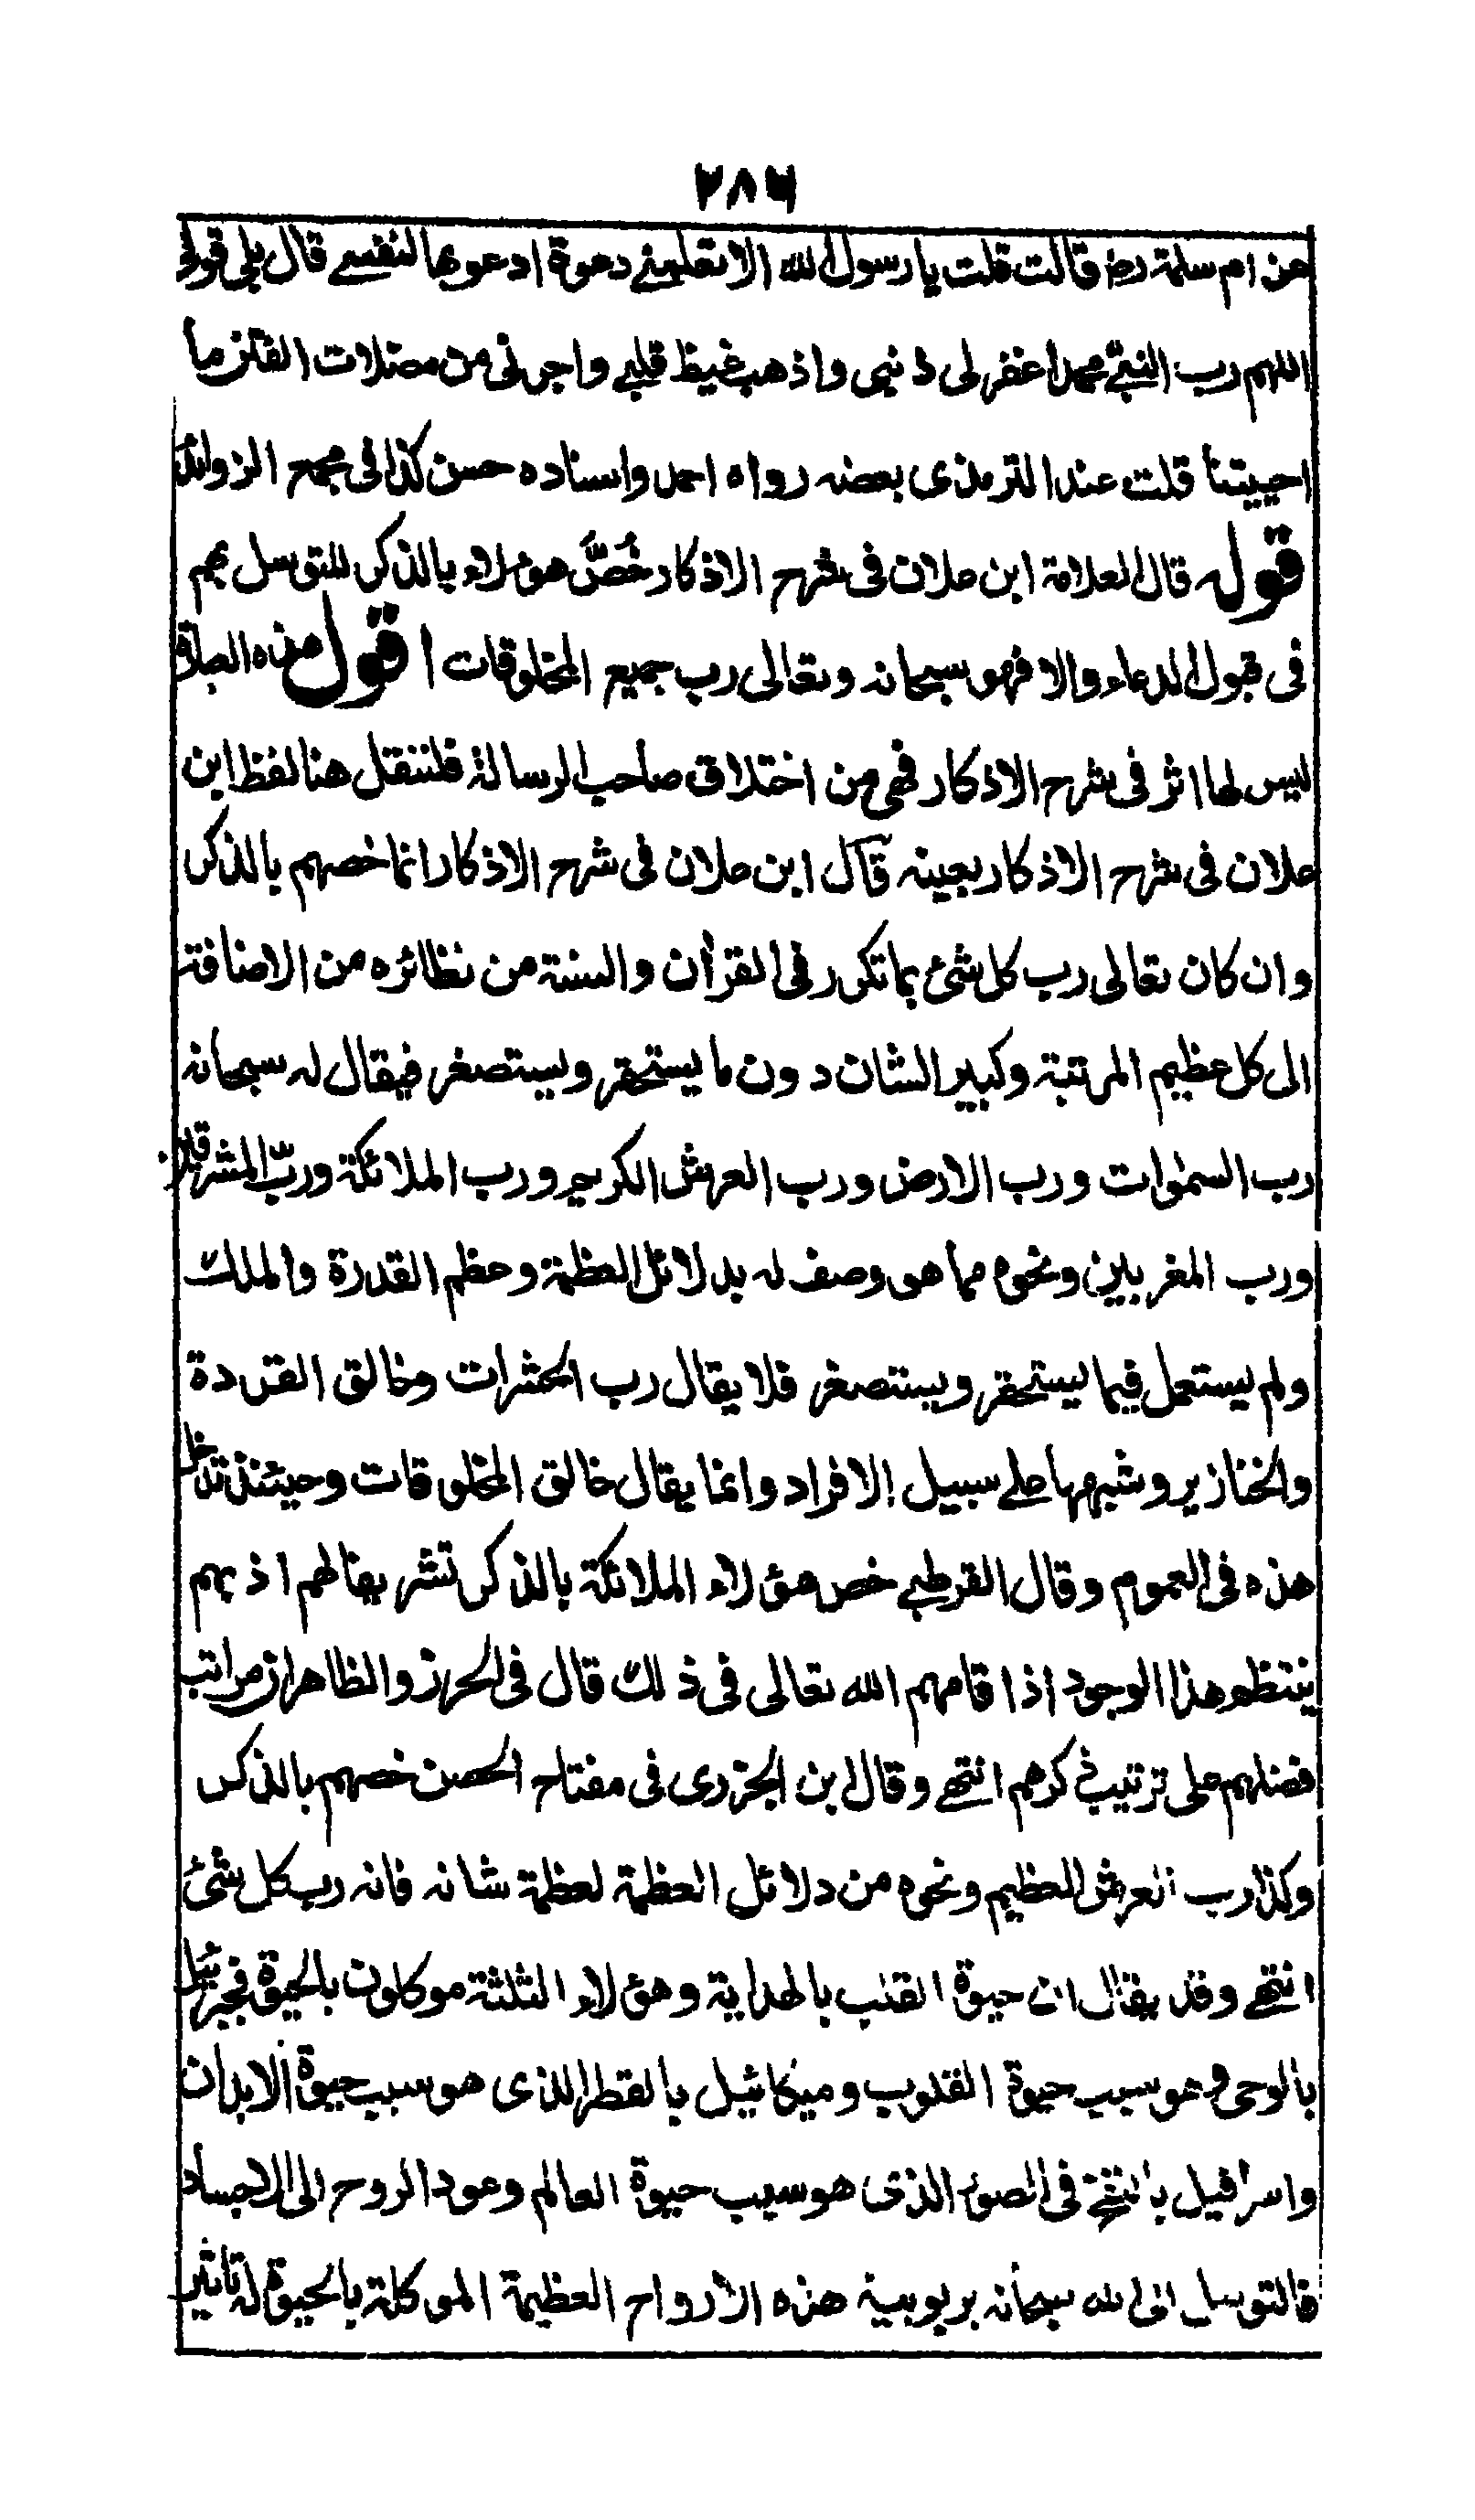 ٢٨٦
عن ام سلمة رضـ قالت قلت يا رسول الله الا تعلمنى دعوة ادعوها لنفسى قال بلى قولى
اللهم رب النبى محمد اغفر لى ذنبى واذهب غيظ قلبى واجرنى من مضلات الفتن ما
احييتنا قلت عند الترمذى بعضه رواه احمد واسناده حسن كذا فى مجمع الزوائد
قوله قال العلامة ابن علان فى شرح الاذكار خُصَّ هؤلاء بالذكر للتوسل بهم
فى قبول الدعاء والا فهو سبحانه وتعالى رب جميع المخلوقات اقول هذه العبارة
ليس لها اثر فى شرح الاذكار فهى من اختلاق صاحب الرسالة فلننقل هنا لفظ ابن
علان فى شرح الاذكار بعينه قال ابن علان فى شرح الاذكار انما خصهم بالذكر
وان كان تعالى رب كل شئ بما تكرر فى القرأن والسنة من نظائره من الاضافة
الى كل عظيم المرتبة وكبير الشان دون ما يستحقر ويستصغر فيقال له سبحانه
رب السمٰوات ورب الارض ورب العرش الكريم ورب الملائكة وربّ المشرقين
ورب المغربين ونحوه مما هو وصف له بدلائل العظمة وعظم القدرة والملك
ولم يستعمل فيما يستحقر ويستصغر فلا يقال رب الحشرات وخالق القردة
والخنازير وشبهها على سبيل الافراد وانما يقال خالق المخلوقات وحينئذ تدخل
هذه فى العموم وقال القرطبى خص هؤلاء الملائكة بالذكر تشريفا لهم اذ بهم
ينتظم هذا الوجود اذ اقامهم الله تعالى فى ذلك قال فى الحرز والظاهر ان مراتب
فضلهم على ترتيب ذكرهم انتهى وقال ابن الجزرى فى مفتاح الحصن خصهم بالذكر
وكذا رب العرش العظيم ونحوه من دلائل العظمة لعظمة شانه فانه رب كل شئ
انتهى وقد يقال ان حيوة القلب بالهداية وهؤلاء الثلثة موكلون بالحيوة فجبرئيل
بالوحى وهو سبب حيوة القلوب وميكائيل بالقطر الذى هو سبب حيوة الابدان
واسرافيل بالنفخ فى الصور الذى هو سبب حيوة العالم وعود الروح الى الاجساد
فالتوسل الى الله سبحانه بربوبية هذه الارواح العظيمة الموكلة بالحيوة له تاثير